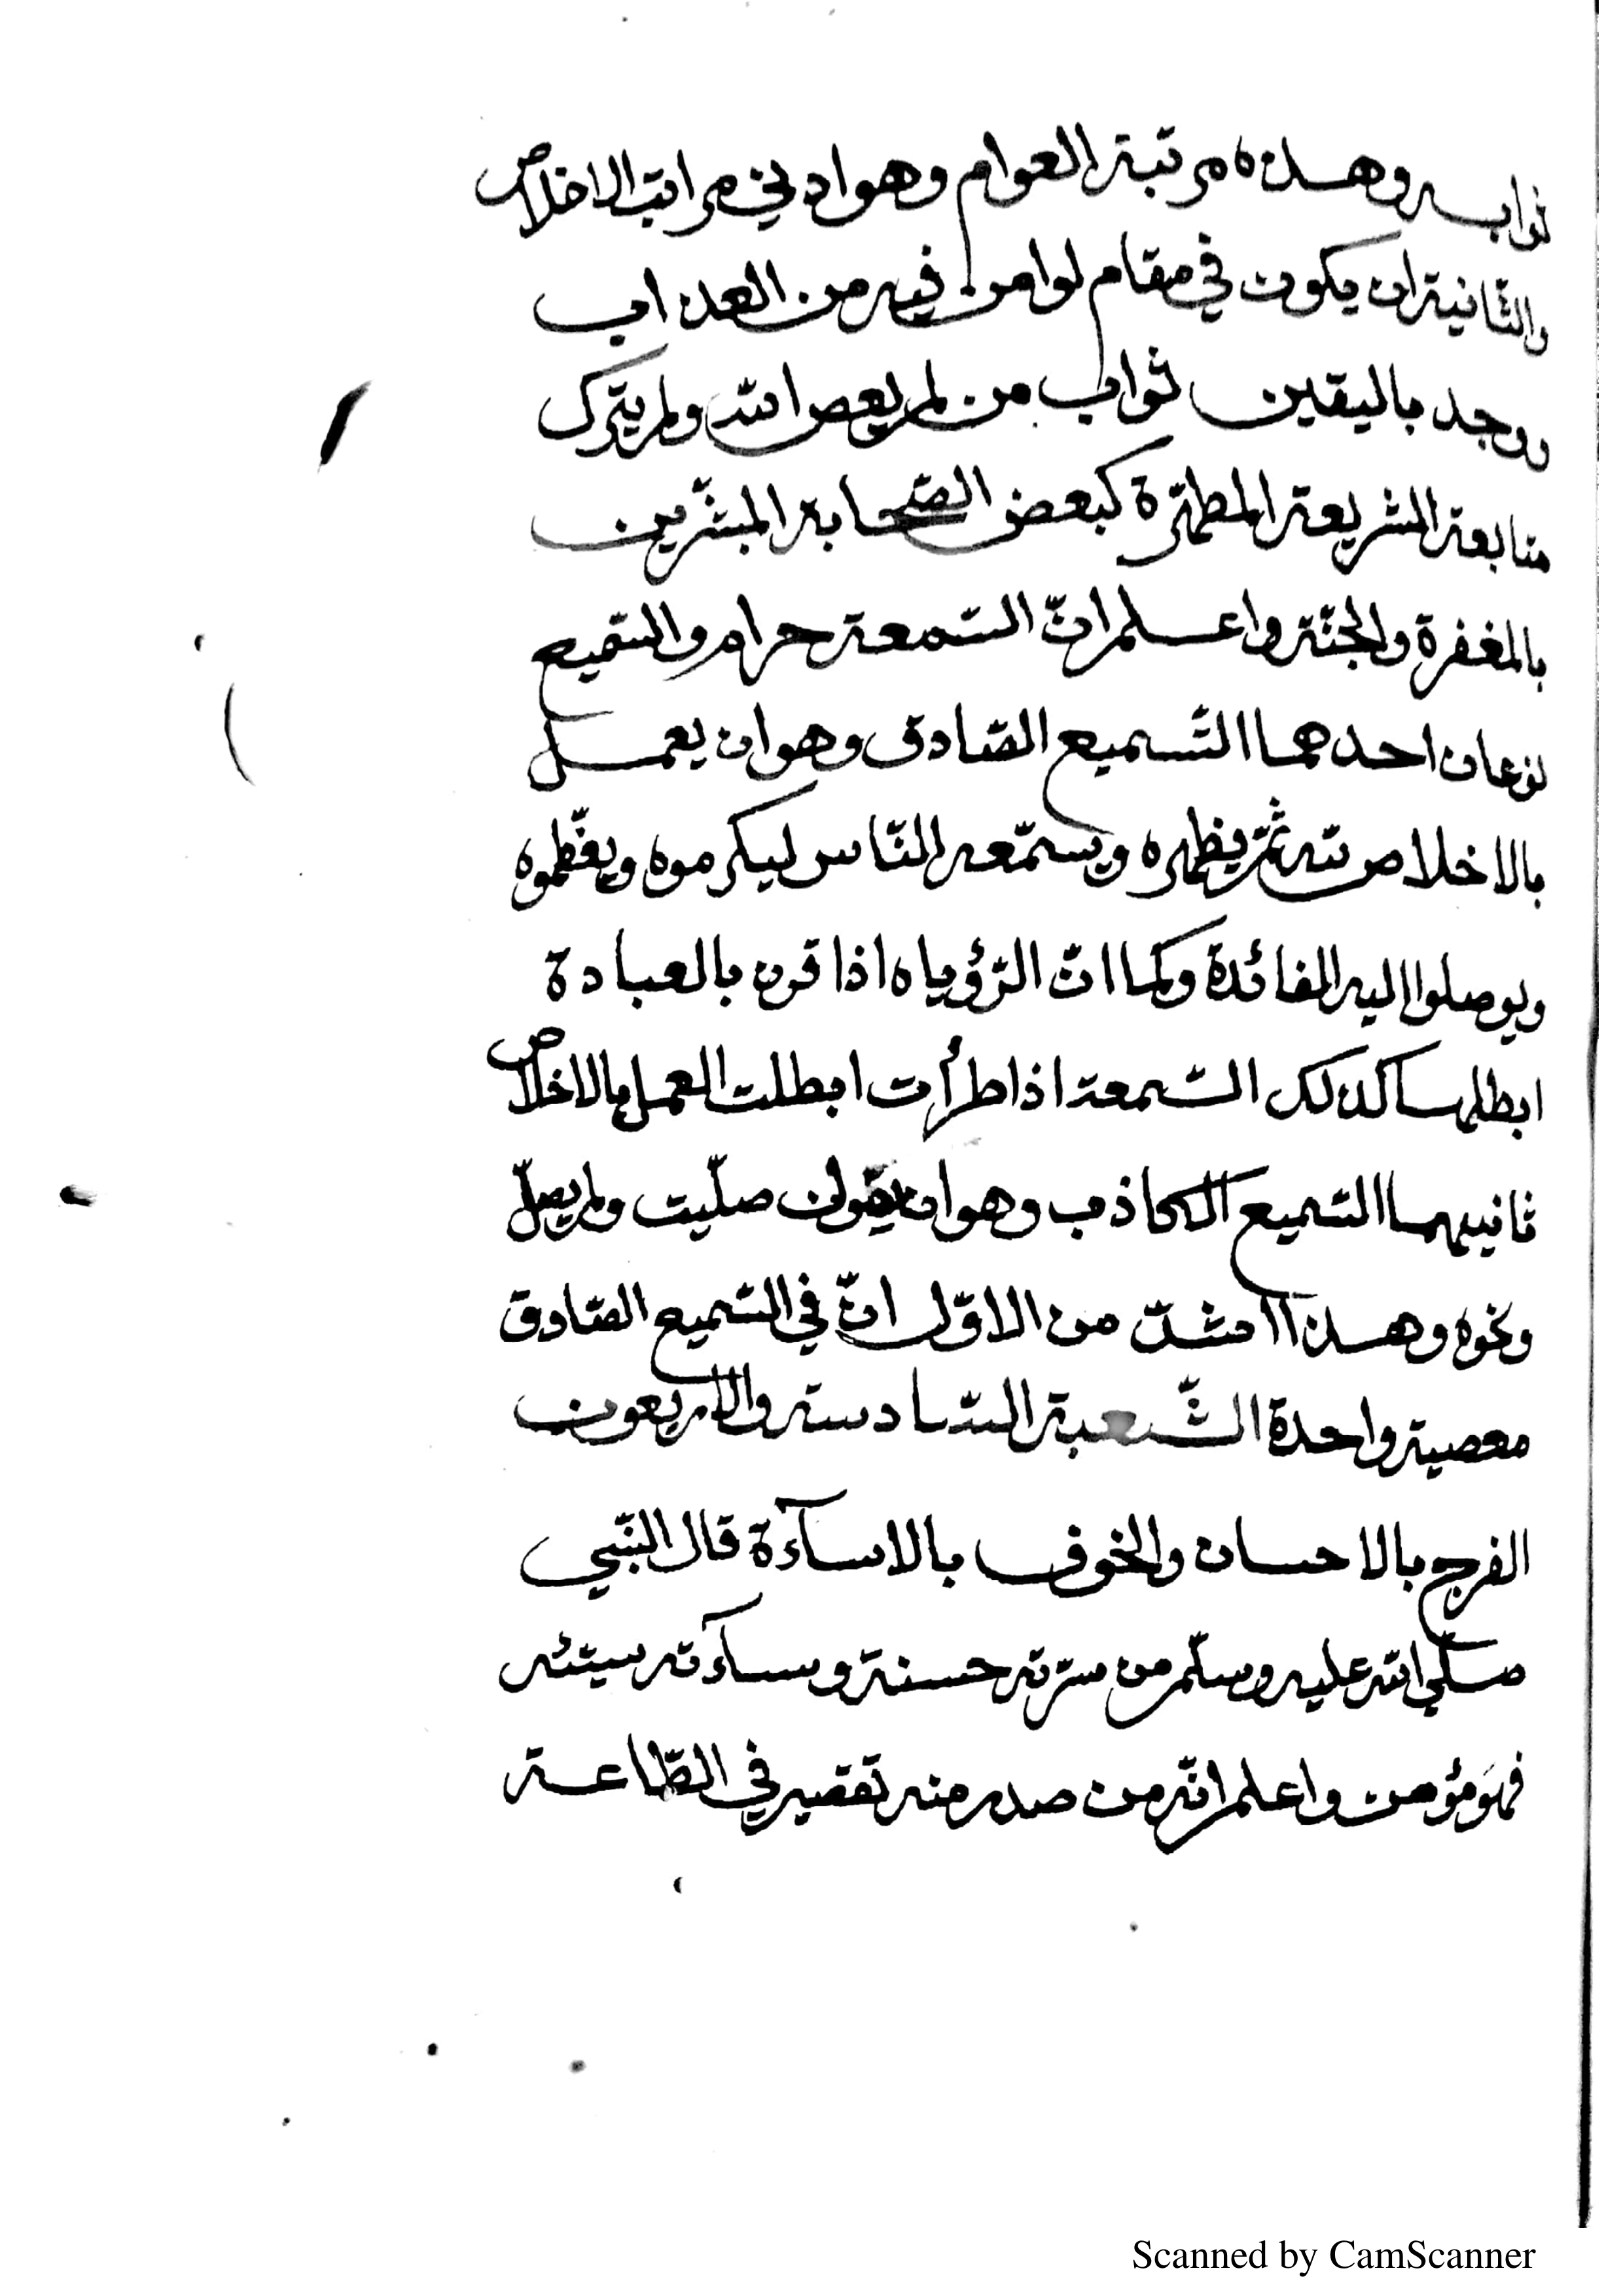 ثوابه وهذه مرتبة العوام وهو ادنى مراتب الاخلاص
والثّانية ان يكون في مقام لو امن فيه من العذاب
ووجد باليقين ثواب من لم يعص الله ولم يترك
متابعة الشريعة المطهّرة كبعض الصّحابة المبشّرين
بالمغفرة والجنّة واعلم انّ السّمعة حرام والتسميع
نوعان احدهما التّسميع الصّادق وهو ان يعمل
بالاخلاص لله ثمّ يظهره ويسمّعه النّاس ليكرموه ويعظّموه
ويوصلوا اليه الفائدة وكما انّ الرّؤياه اذا قرن بالعبادة
ابطلها كذلك السّمعة اذا طرأت ابطلت العمل بالاخلاص
ثانيهما التسميع الكاذب وهو ان يقول صلّيت ولم يصلّ
ونحوه وهذا اشدّ من الاوّل انّ في التسميع الصّادق
معصية واحدة الشّعبة السّادسة والاربعون
الفرح بالاحسان والخوف بالاساءة قال النّبي
صلّى الله عليه وسلّم من سرّته حسنة وساءته سيّئه
فهو مؤمن واعلم انّه من صدر منه تقصير في الطّاعة
Scanned by CamScanner